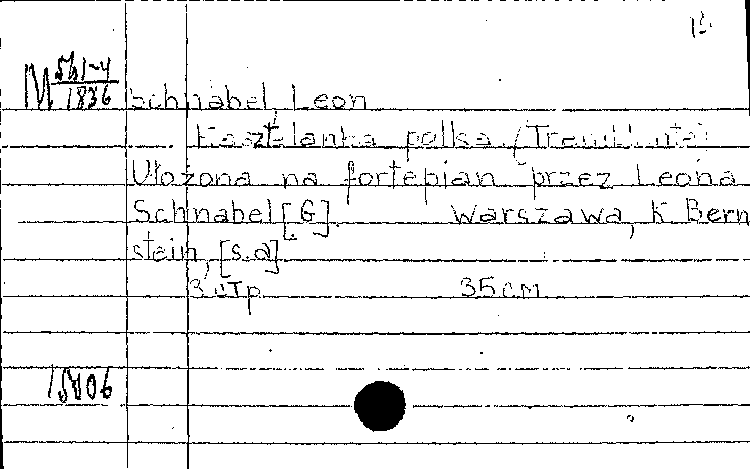 M 561-4
1836
Schnabel, Leon
Kasztelanka polka.
Ułożona na fortepian przez Leona
Schnabel [G]. Warszawa, K Bern
stein, [s.a]
3 стр 35 cm